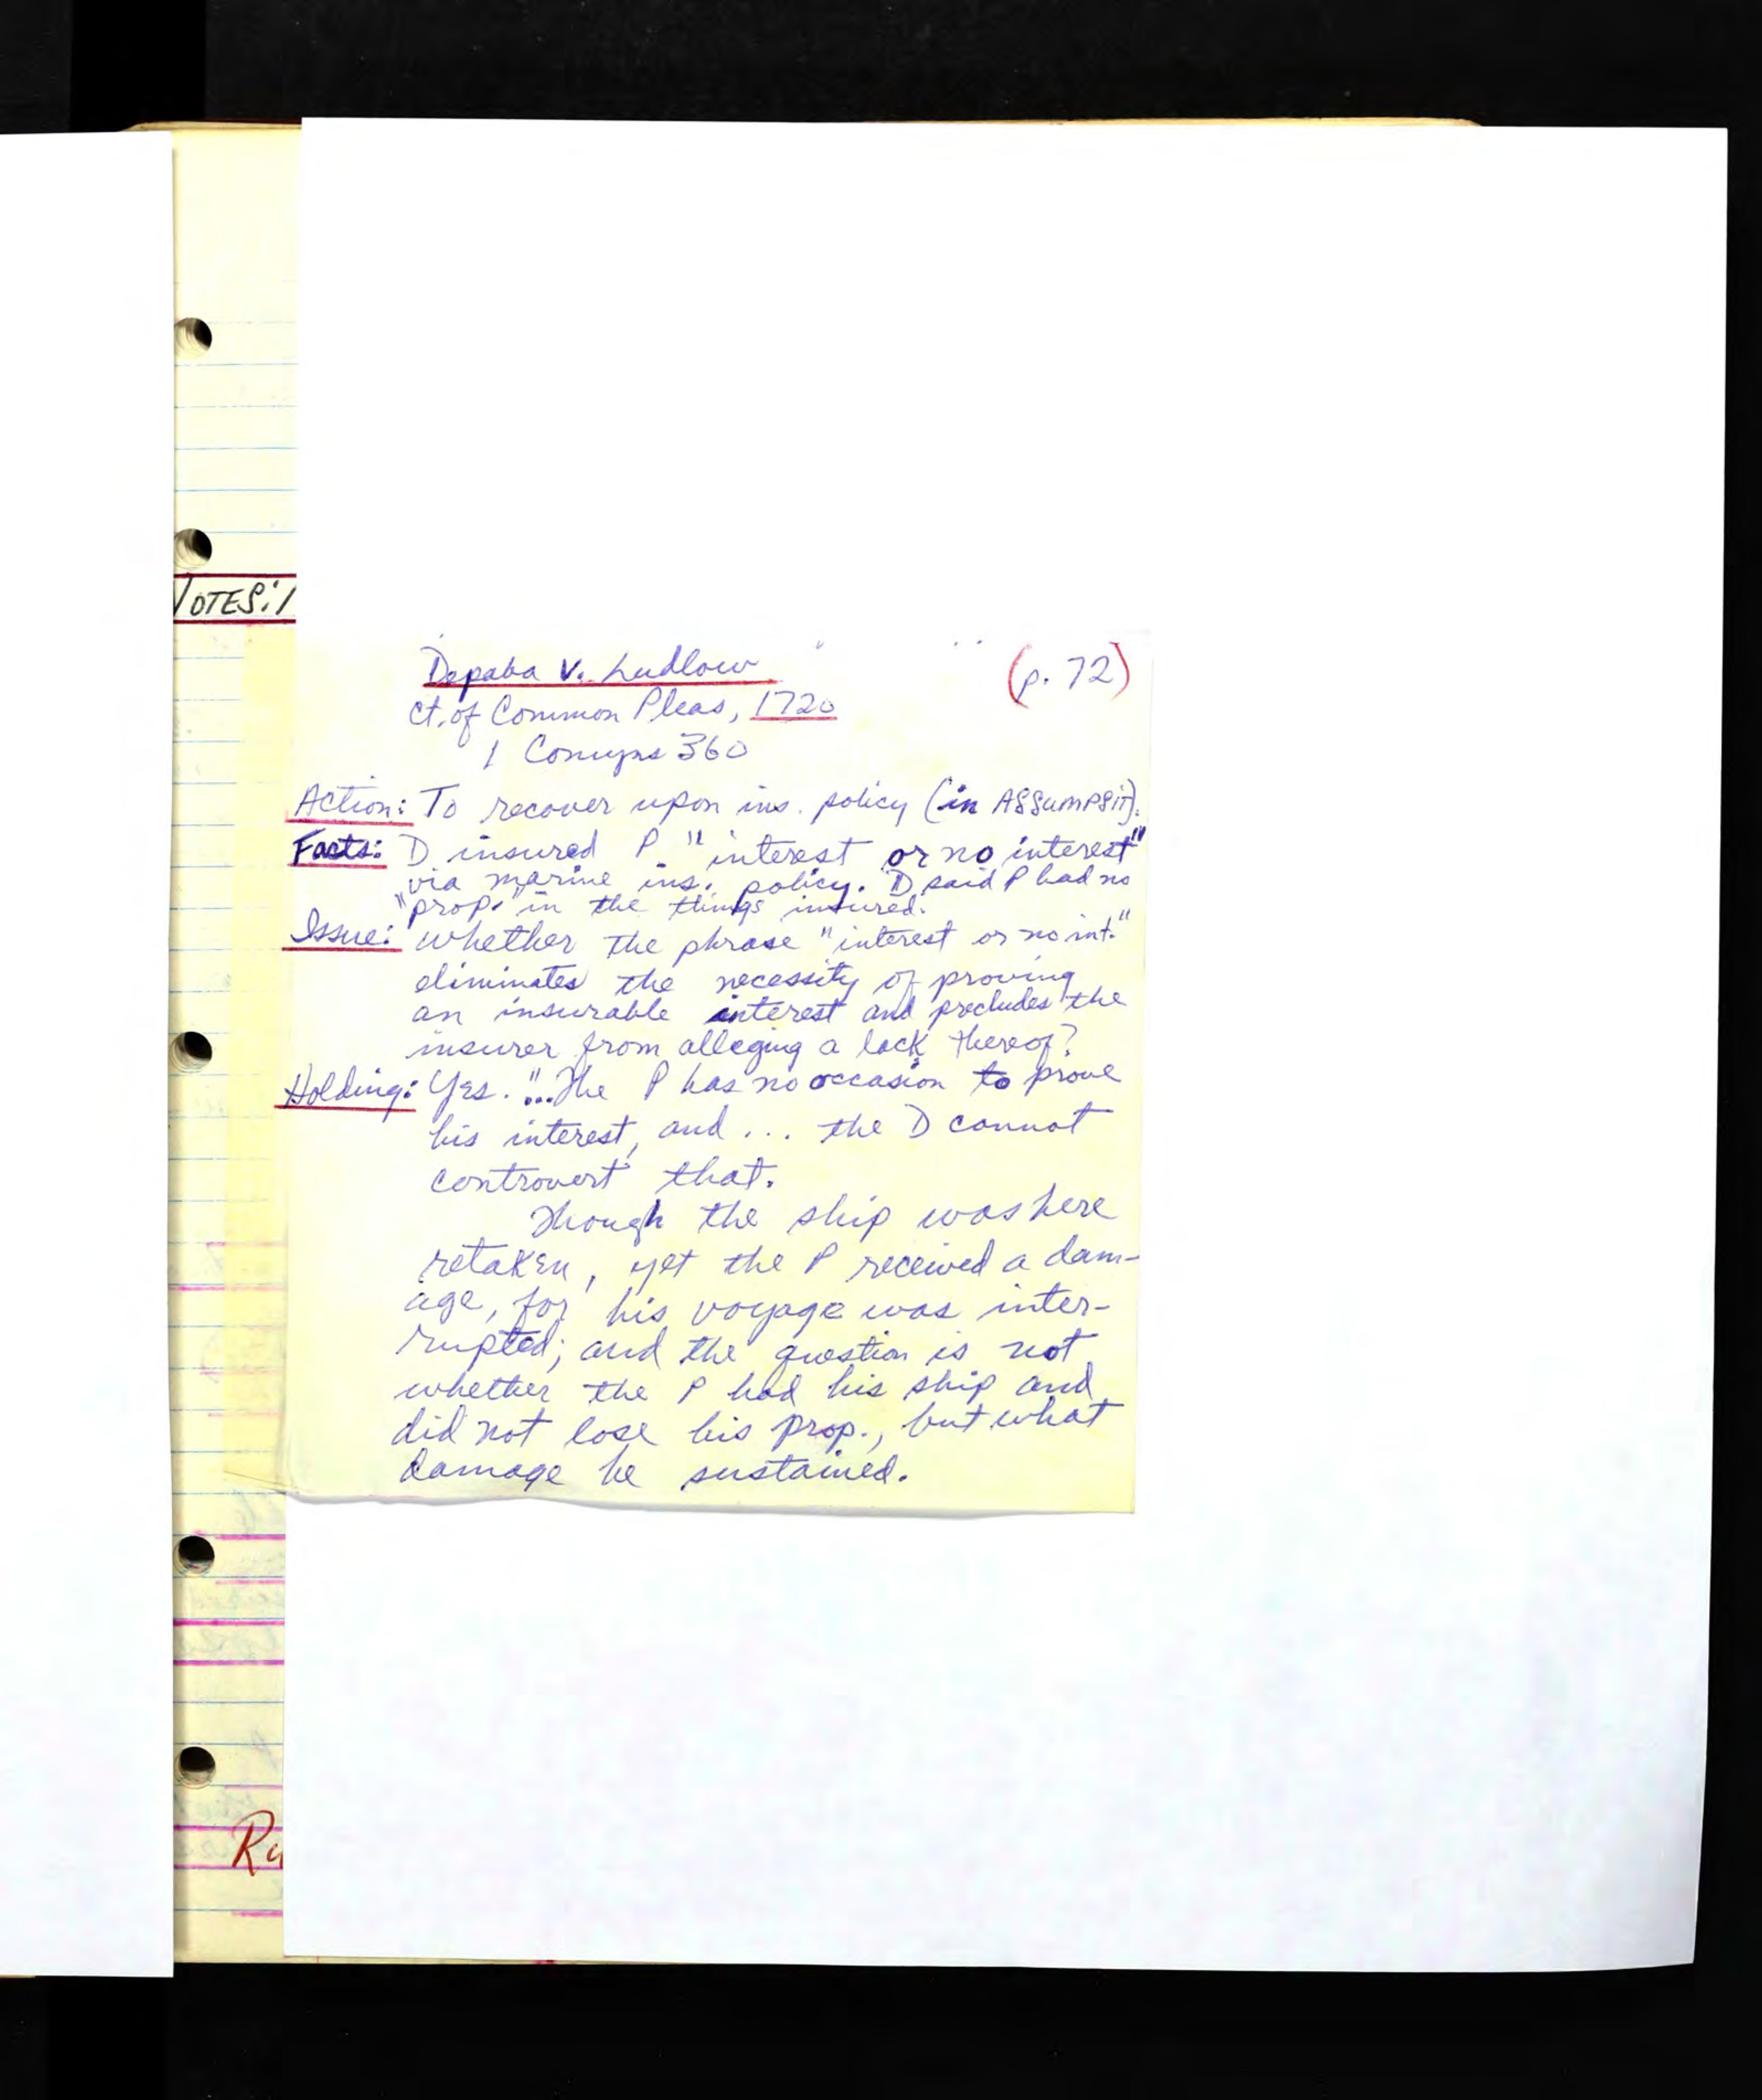 NOTES:
Depaba v. Ludlow (p. 72)
Ct. of Common Pleas, 1720
1 Comyns 360
Action: To recover upon ins. policy (in ASSUMPSIT).
Facts: D insured P "interest or no interest"
via marine ins. policy. D said P had no
"prop." in the things insured.
Issue: Whether the phrase "interest or no int."
eliminates the necessity of proving
an insurable interest and precludes the
insurer from alleging a lack thereof?
Holding: Yes. "...The P has no occasion to prove
his interest, and ... the D cannot
controvert that.
Though the ship was here
retaken, yet the P received a dam-
age, for his voyage was inter-
rupted; and the question is not
whether the P had his ship and
did not lose his prop., but what
damage he sustained.
Ru